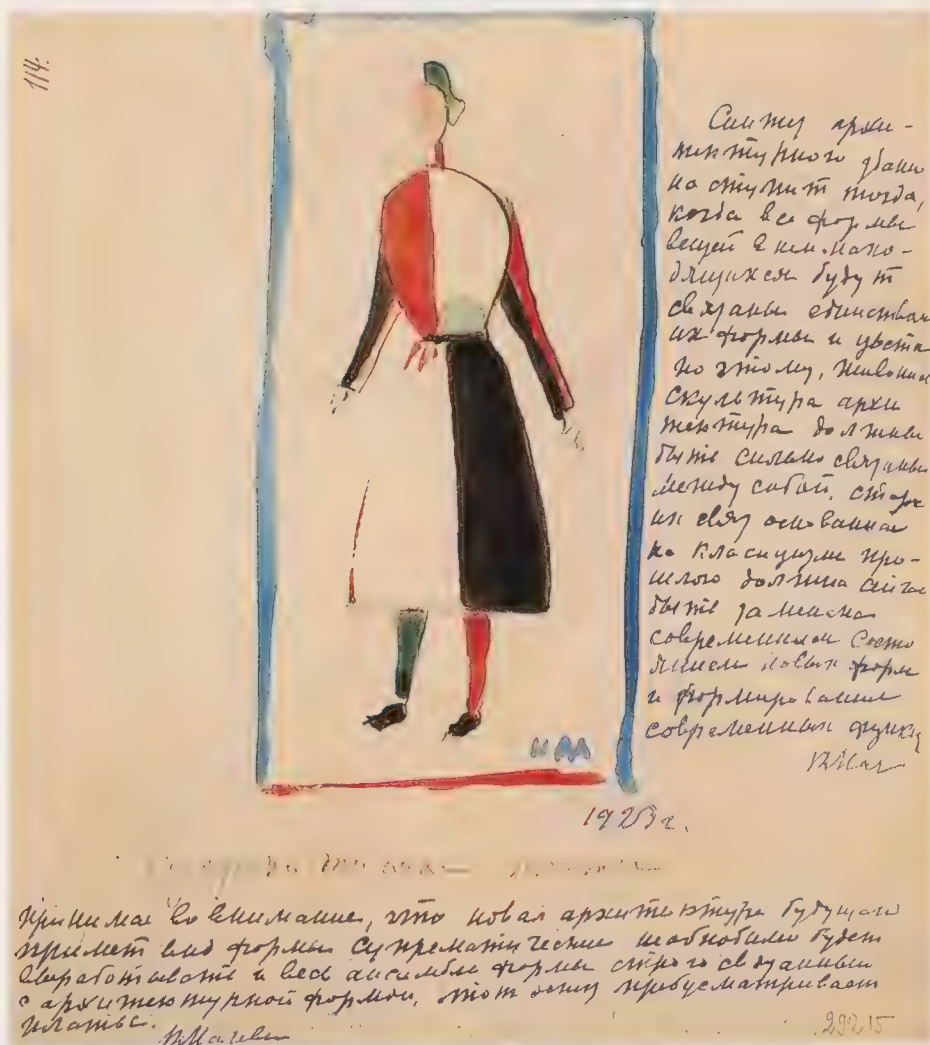 114.
Синтез архи-
тектурного здани
наступит тогда,
когда все формы
вещей в нем нахо-
дящихся будут
связаны единством
их формы и цвета
поэтому, живопис
скульптура архи
тектура должны
быть сильно связаны
между собой, стар
их связ основанная
на класицизме про-
шлого должна
быть заменена
современным
новых форм
и формировании
современных функц
КМал
КМ
1923 г.
Принимая во внимание, что новая архитектура будущего
примет вид формы супрематические необходимо будет
вырабатывать и весь ансамбль формы строго связанный
с архитектурной формой, этот эскиз предусматривает
платье.
КМалевич
29215